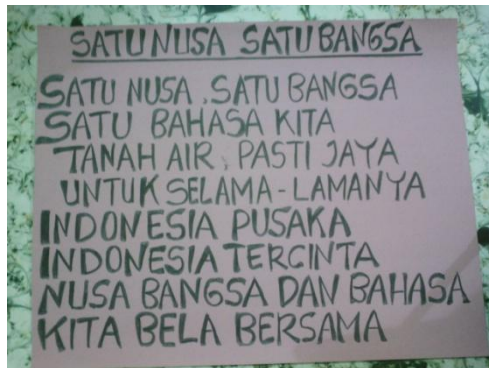 SATU NUSA SATU BANGSA
SATU NUSA, SATU BANGSA
SATU BAHASA KITA
TANAH AIR, PASTI JAYA
UNTUK SELAMA-LAMANYA
INDONESIA PUSAKA
INDONESIA TERCINTA
NUSA BANGSA DAN BAHASA
KITA BELA BERSAMA